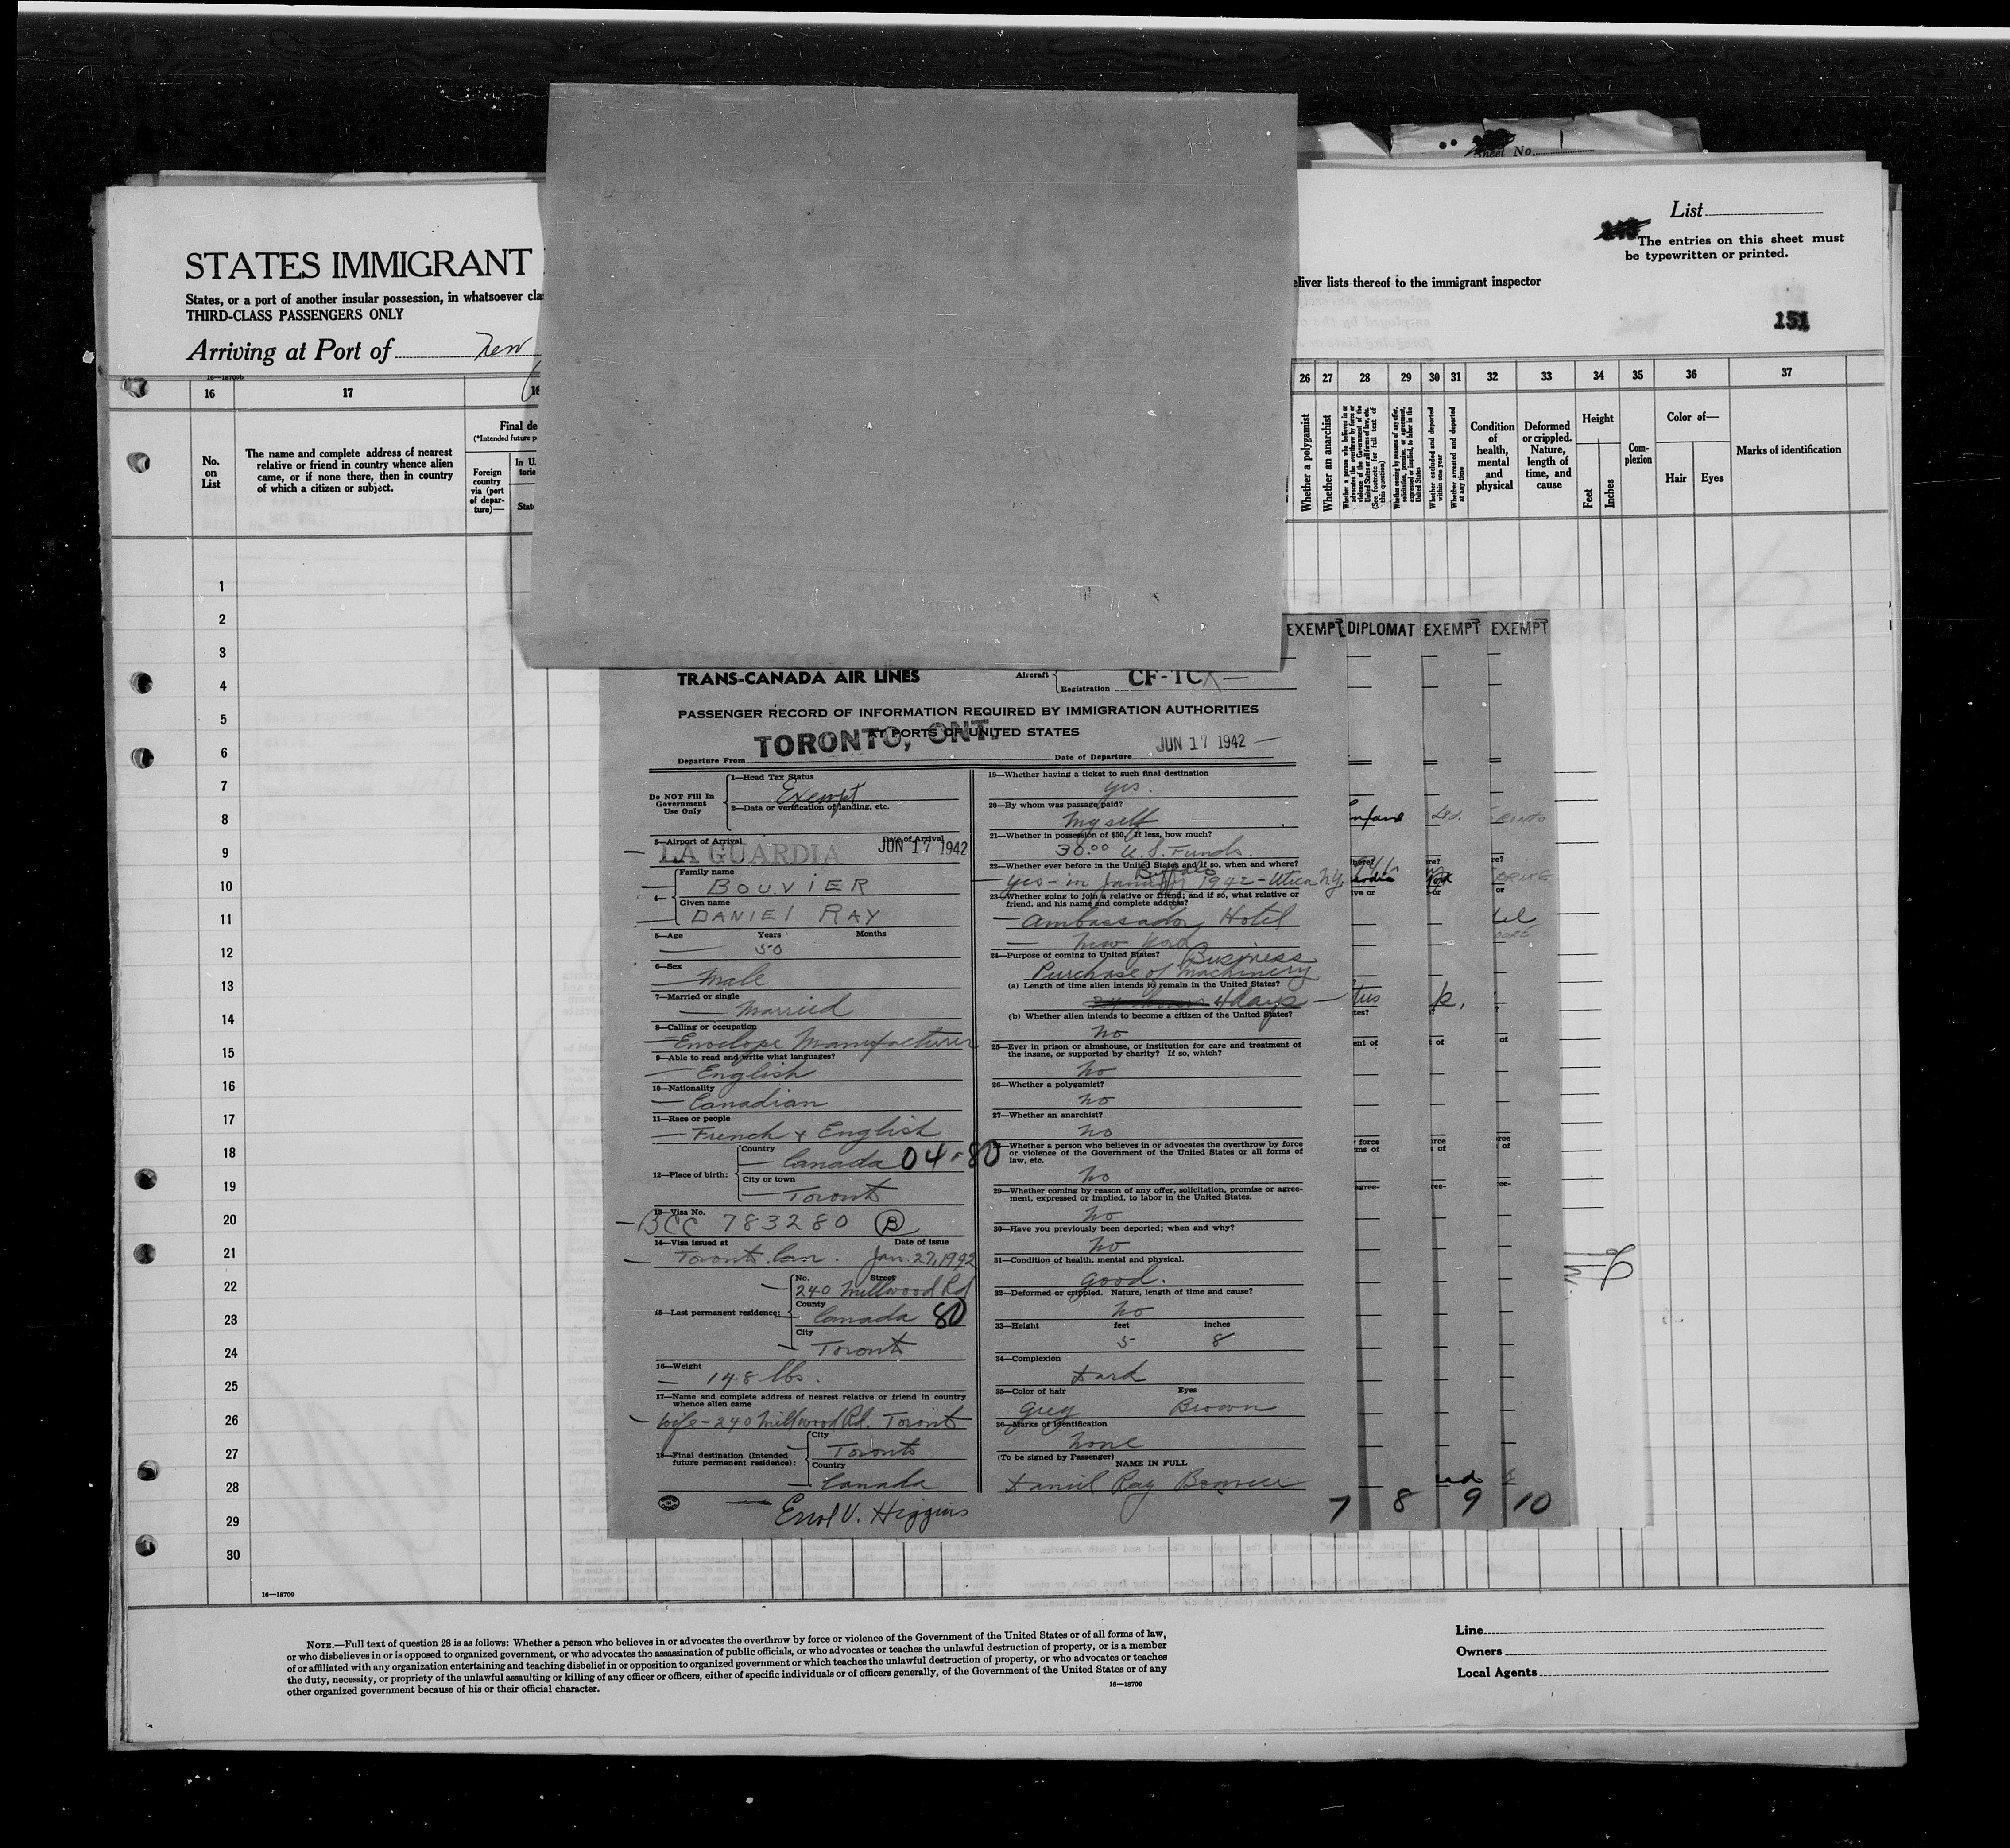 Sheet No. 1
List
The entries on this sheet must
be typewritten or printed.
STATES IMMIGRANT
States, or a port of another insular possession, in whatsoever cla
eliver lists thereof to the immigrant inspector
THIRD-CLASS PASSENGERS ONLY
151
Arriving at Port of New
16—18709b
16 17 26 27 28 29 30 31 32 33 34 35 36 37
No.
on
List
The name and complete address of nearest
relative or friend in country whence alien
came, or if none there, then in country
of which a citizen or subject.
Final de
(*Intended future p
Foreign
country
via (port
of depar-
ture)—
In U.
Whether a polygamist
Whether an anarchist
Whether a person who believes in or
advocates the overthrow by force or
violence of the Government of the
United States or all forms of law, etc.
(See footnote for full text of
this question)
Whether coming by reason of any offer,
solicitation, promise, or agreement,
expressed or implied, to labor in the
United States
Whether excluded and deported
within one year
Whether arrested and deported
at any time
Condition
of
health,
mental
and
physical
Deformed
or crippled.
Nature,
length of
time, and
cause
Height
Feet
Inches
Com-
plexion
Color of—
Hair Eyes
Marks of identification
1
2
3
4
5
6
7
8
9
10
11
12
13
14
15
16
17
18
19
20
21
22
23
24
25
26
27
28
29
30
EXEMPT DIPLOMAT EXEMPT EXEMPT
TRANS-CANADA AIR LINES
Aircraft
Registration CF-TCX
PASSENGER RECORD OF INFORMATION REQUIRED BY IMMIGRATION AUTHORITIES
AT PORTS OF UNITED STATES
Departure From TORONTO, ONT.
Date of Departure JUN 17 1942
Do NOT Fill In
Government
Use Only
1—Head Tax Status
Exempt
2—Data or verification of landing, etc.
3—Airport of Arrival Date of Arrival
LA GUARDIA JUN 17 1942
Family name
BOUVIER
Given name
DANIEL RAY
5—Age Years Months
50
6—Sex
Male
7—Married or single
Married
8—Calling or occupation
Envelope Manufacturer
9—Able to read and write what languages?
English
10—Nationality
Canadian
11—Race or people
French + English
12—Place of birth:
Country
Canada 04-80
City or town
Toronto
13—Visa No.
BCC 783280 B
14—Visa issued at Date of issue
Toronto Can. Jan. 27, 1942
15—Last permanent residence:
No. Street
240 Millwood Rd
County
Canada 80
City
Toronto
16—Weight
148 lbs.
17—Name and complete address of nearest relative or friend in country
whence alien came
Wife - 240 Millwood Rd. Toronto
18—Final destination (Intended
future permanent residence):
City
Toronto
Country
Canada
Errol V. Higgins
19—Whether having a ticket to such final destination
yes.
20—By whom was passage paid?
Myself
21—Whether in possession of $50. If less, how much?
30.00 U.S. Funds.
22—Whether ever before in the United States and if so, when and where?
Buffalo
yes - in January 1942 - Utica N.Y.
23—Whether going to join a relative or friend; and if so, what relative or
friend, and his name and complete address?
Ambassador Hotel
New York
24—Purpose of coming to United States? Business
Purchase of Machinery
(a) Length of time alien intends to remain in the United States?
4 days
(b) Whether alien intends to become a citizen of the United States?
No
25—Ever in prison or almshouse, or institution for care and treatment of
the insane, or supported by charity? If so, which?
No
26—Whether a polygamist?
No
27—Whether an anarchist?
No
Whether a person who believes in or advocates the overthrow by force
or violence of the Government of the United States or all forms of
law, etc.
No
29—Whether coming by reason of any offer, solicitation, promise or agree-
ment, expressed or implied, to labor in the United States.
No
30—Have you previously been deported; when and why?
No
31—Condition of health, mental and physical.
good.
32—Deformed or crippled. Nature, length of time and cause?
No
33—Height feet inches
5 8
34—Complexion
Dark
35—Color of hair Eyes
Grey Brown
36—Marks of identification
None
(To be signed by Passenger)
NAME IN FULL
Daniel Ray Bouvier
7 8 9 10
16—18709
NOTE.—Full text of question 28 is as follows: Whether a person who believes in or advocates the overthrow by force or violence of the Government of the United States or of all forms of law,
or who disbelieves in or is opposed to organized government, or who advocates the assassination of public officials, or who advocates or teaches the unlawful destruction of property, or is a member
of or affiliated with any organization entertaining and teaching disbelief in or opposition to organized government or which teaches the unlawful destruction of property, or who advocates or teaches
the duty, necessity, or propriety of the unlawful assaulting or killing of any officer or officers, either of specific individuals or of officers generally, of the Government of the United States or of any
other organized government because of his or their official character.
16—18709
Line
Owners
Local Agents